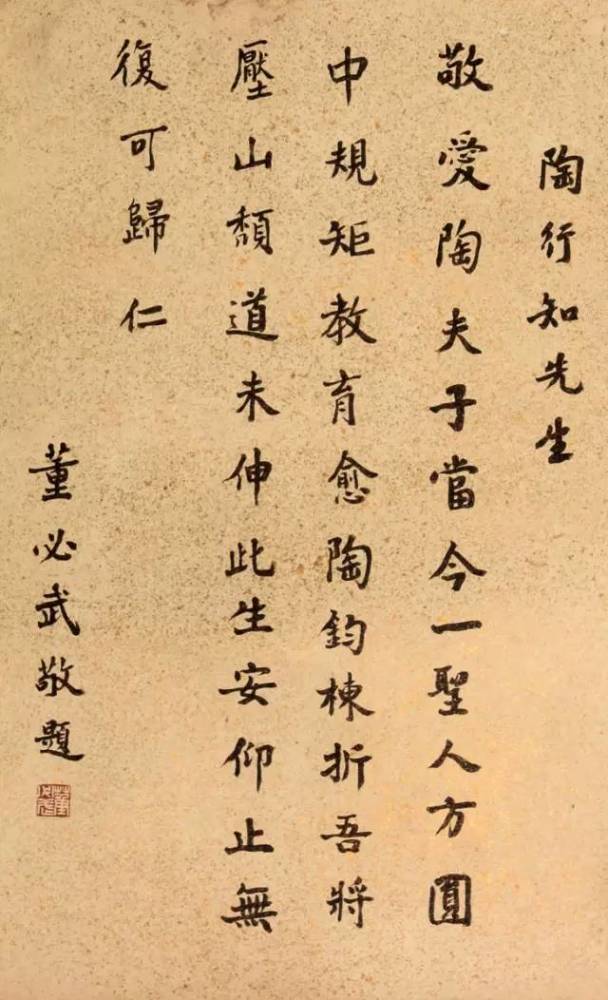 陶行知先生
敬愛陶夫子當今一聖人方圓
中規矩教育愈陶鈞棟折吾將
壓山頹道未伸此生安仰止無
復可歸仁
董必武敬題
董必武